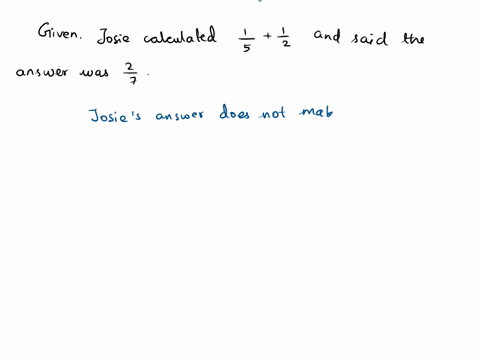 Given. Josie calculated 1/5 + 1/2 and said the
answer was 2/7.
Josie's answer does not mak